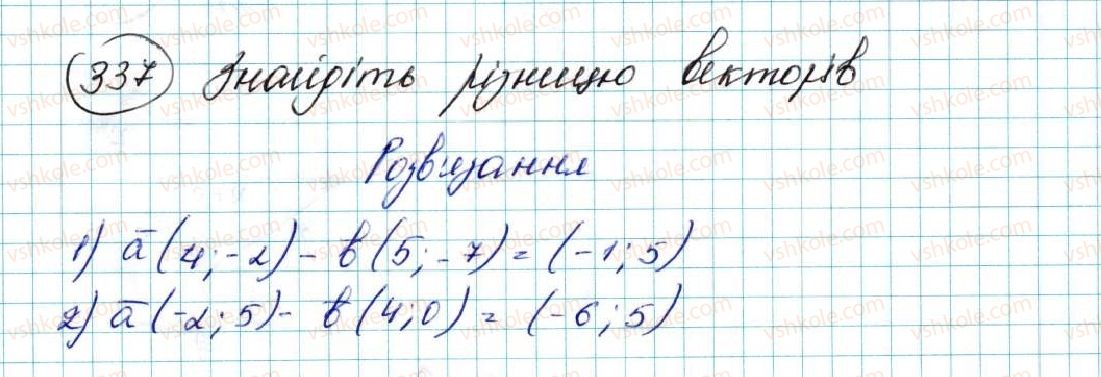 337 Знайдіть різницю векторів
Розв'язання
1) a̅ (4; -2) - b (5; -7) = (-1; 5)
2) a̅ (-2; 5) - b (4; 0) = (-6; 5)